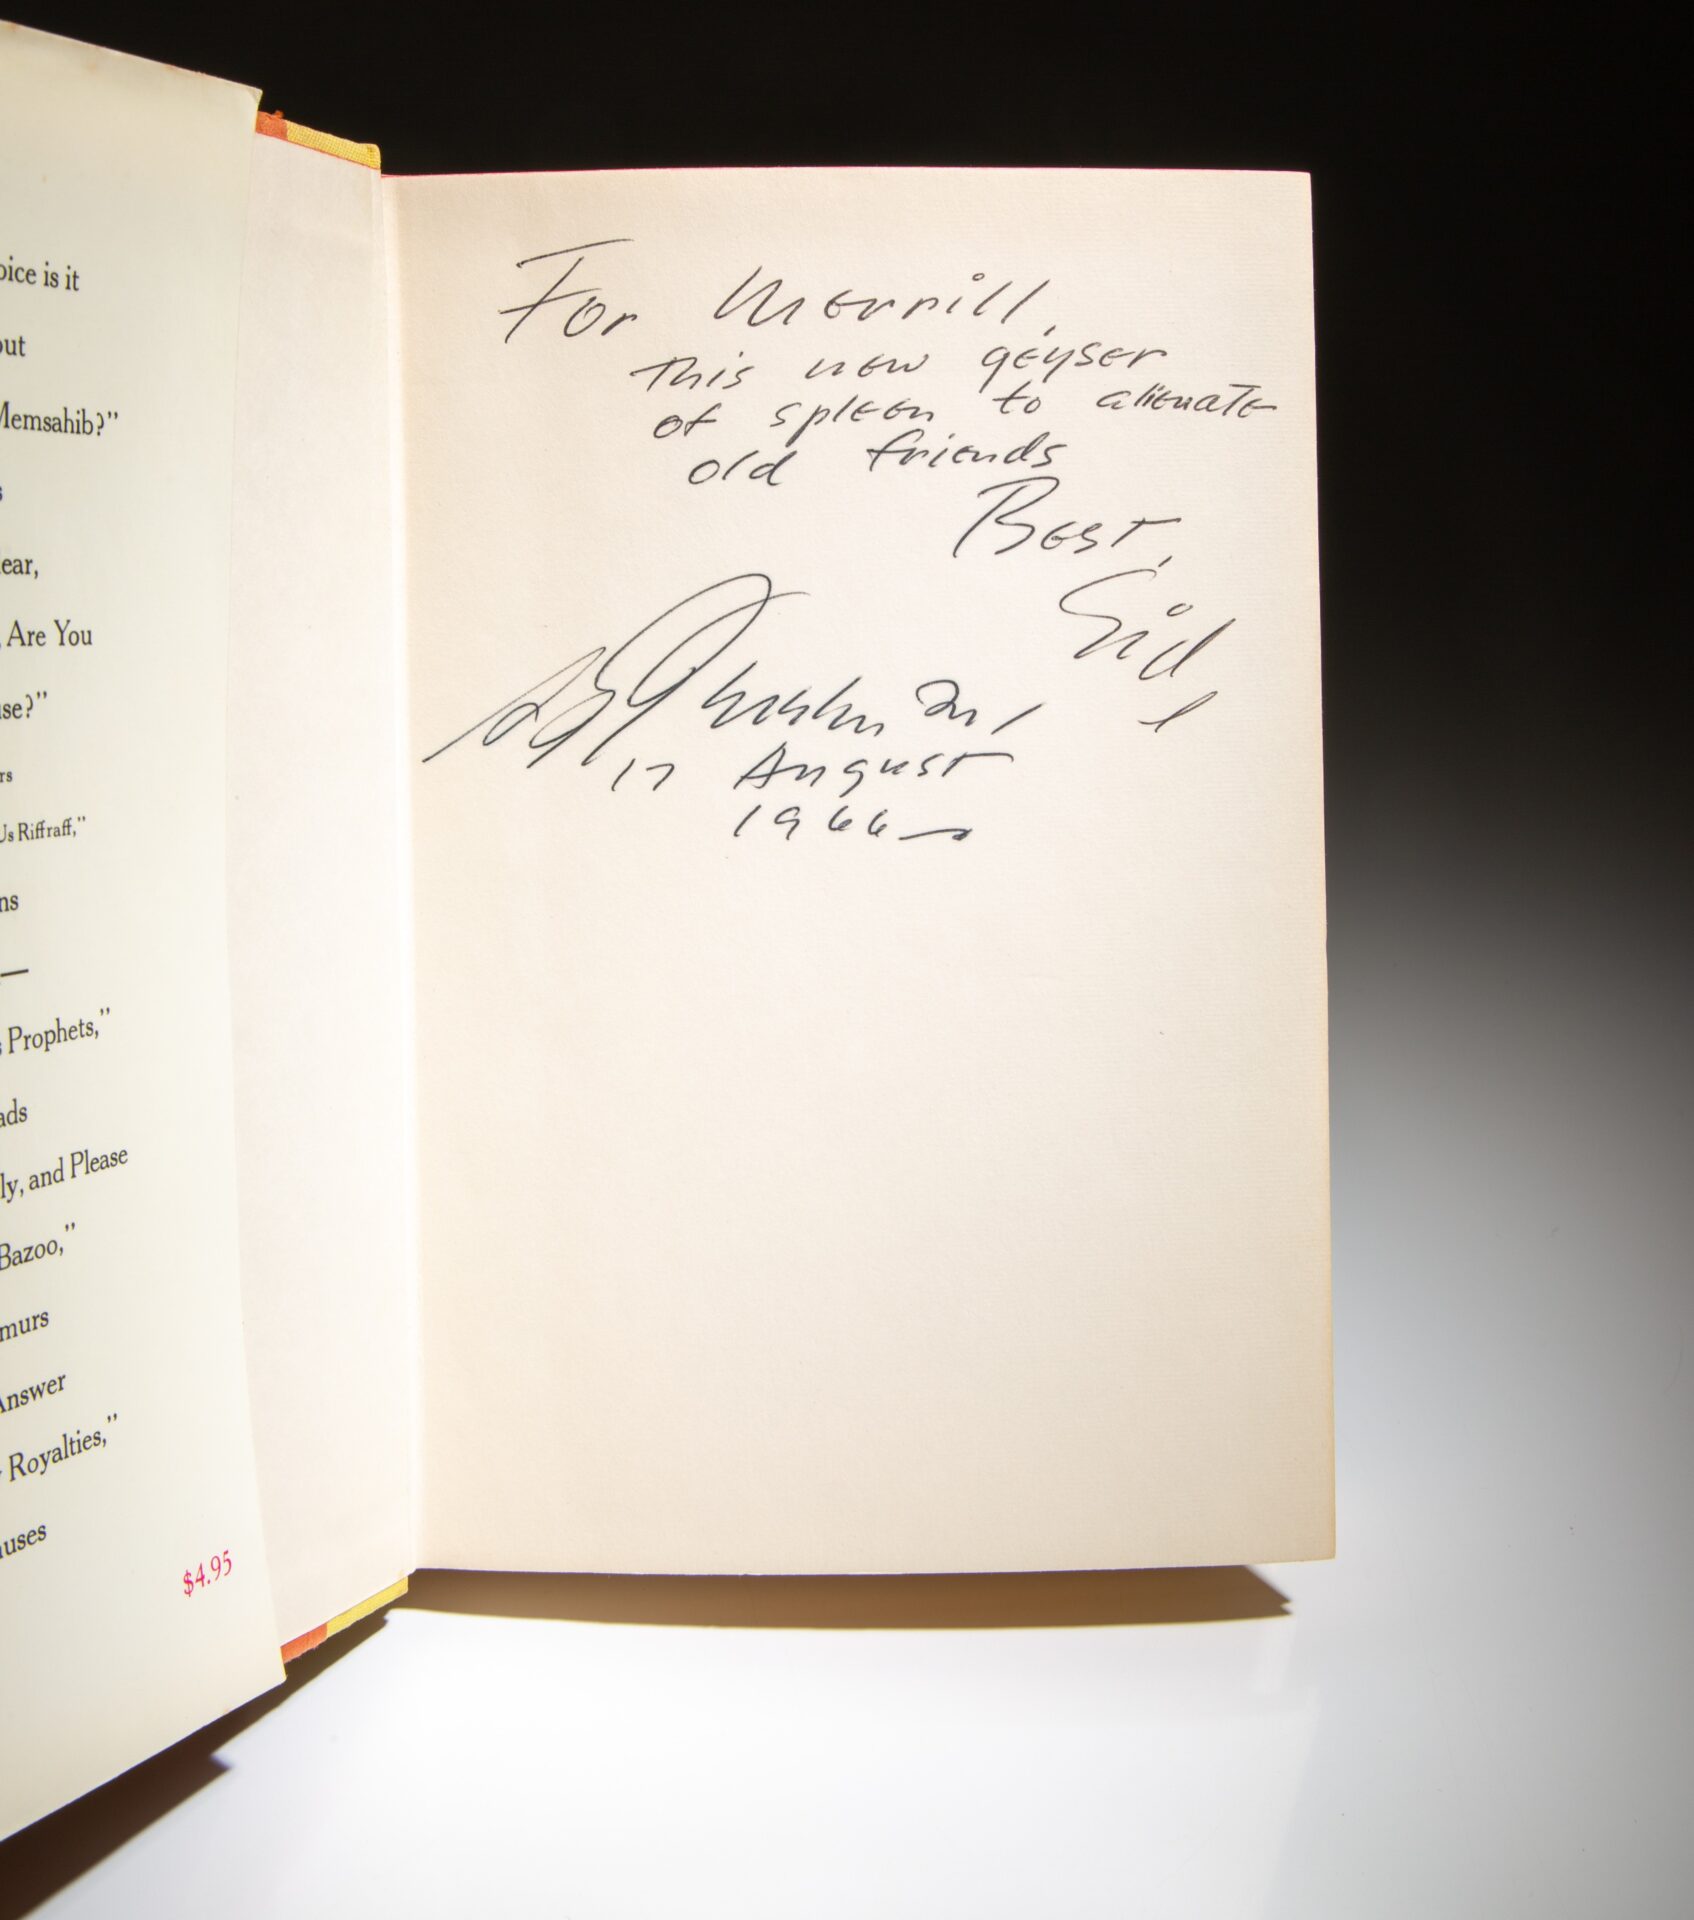 oice is it
out
Memsahib?"
s
ear,
, Are You
use?"
rs
Us Riffraff,"
ns
—
s Prophets,"
ads
ly, and Please
Bazoo,"
murs
Answer
Royalties,"
uses
$4.95
For Merrill,
This new geyser
of spleen to alienate
old friends
Best,
Sid
17 August
1966